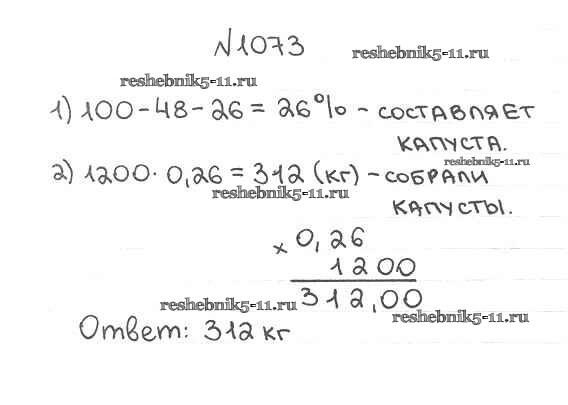 №1073
reshebnik5-11.ru
reshebnik5-11.ru
1) 100-48-26 = 26% - СОСТАВЛЯЕТ
КАПУСТА.
reshebnik5-11.ru
2) 1200· 0,26 = 312 (кг) - СОБРАЛИ
reshebnik5-11.ru
КАПУСТЫ.
× 0,26
1200
312,00
reshebnik5-11.ru
reshebnik5-11.ru
Ответ: 312 кг